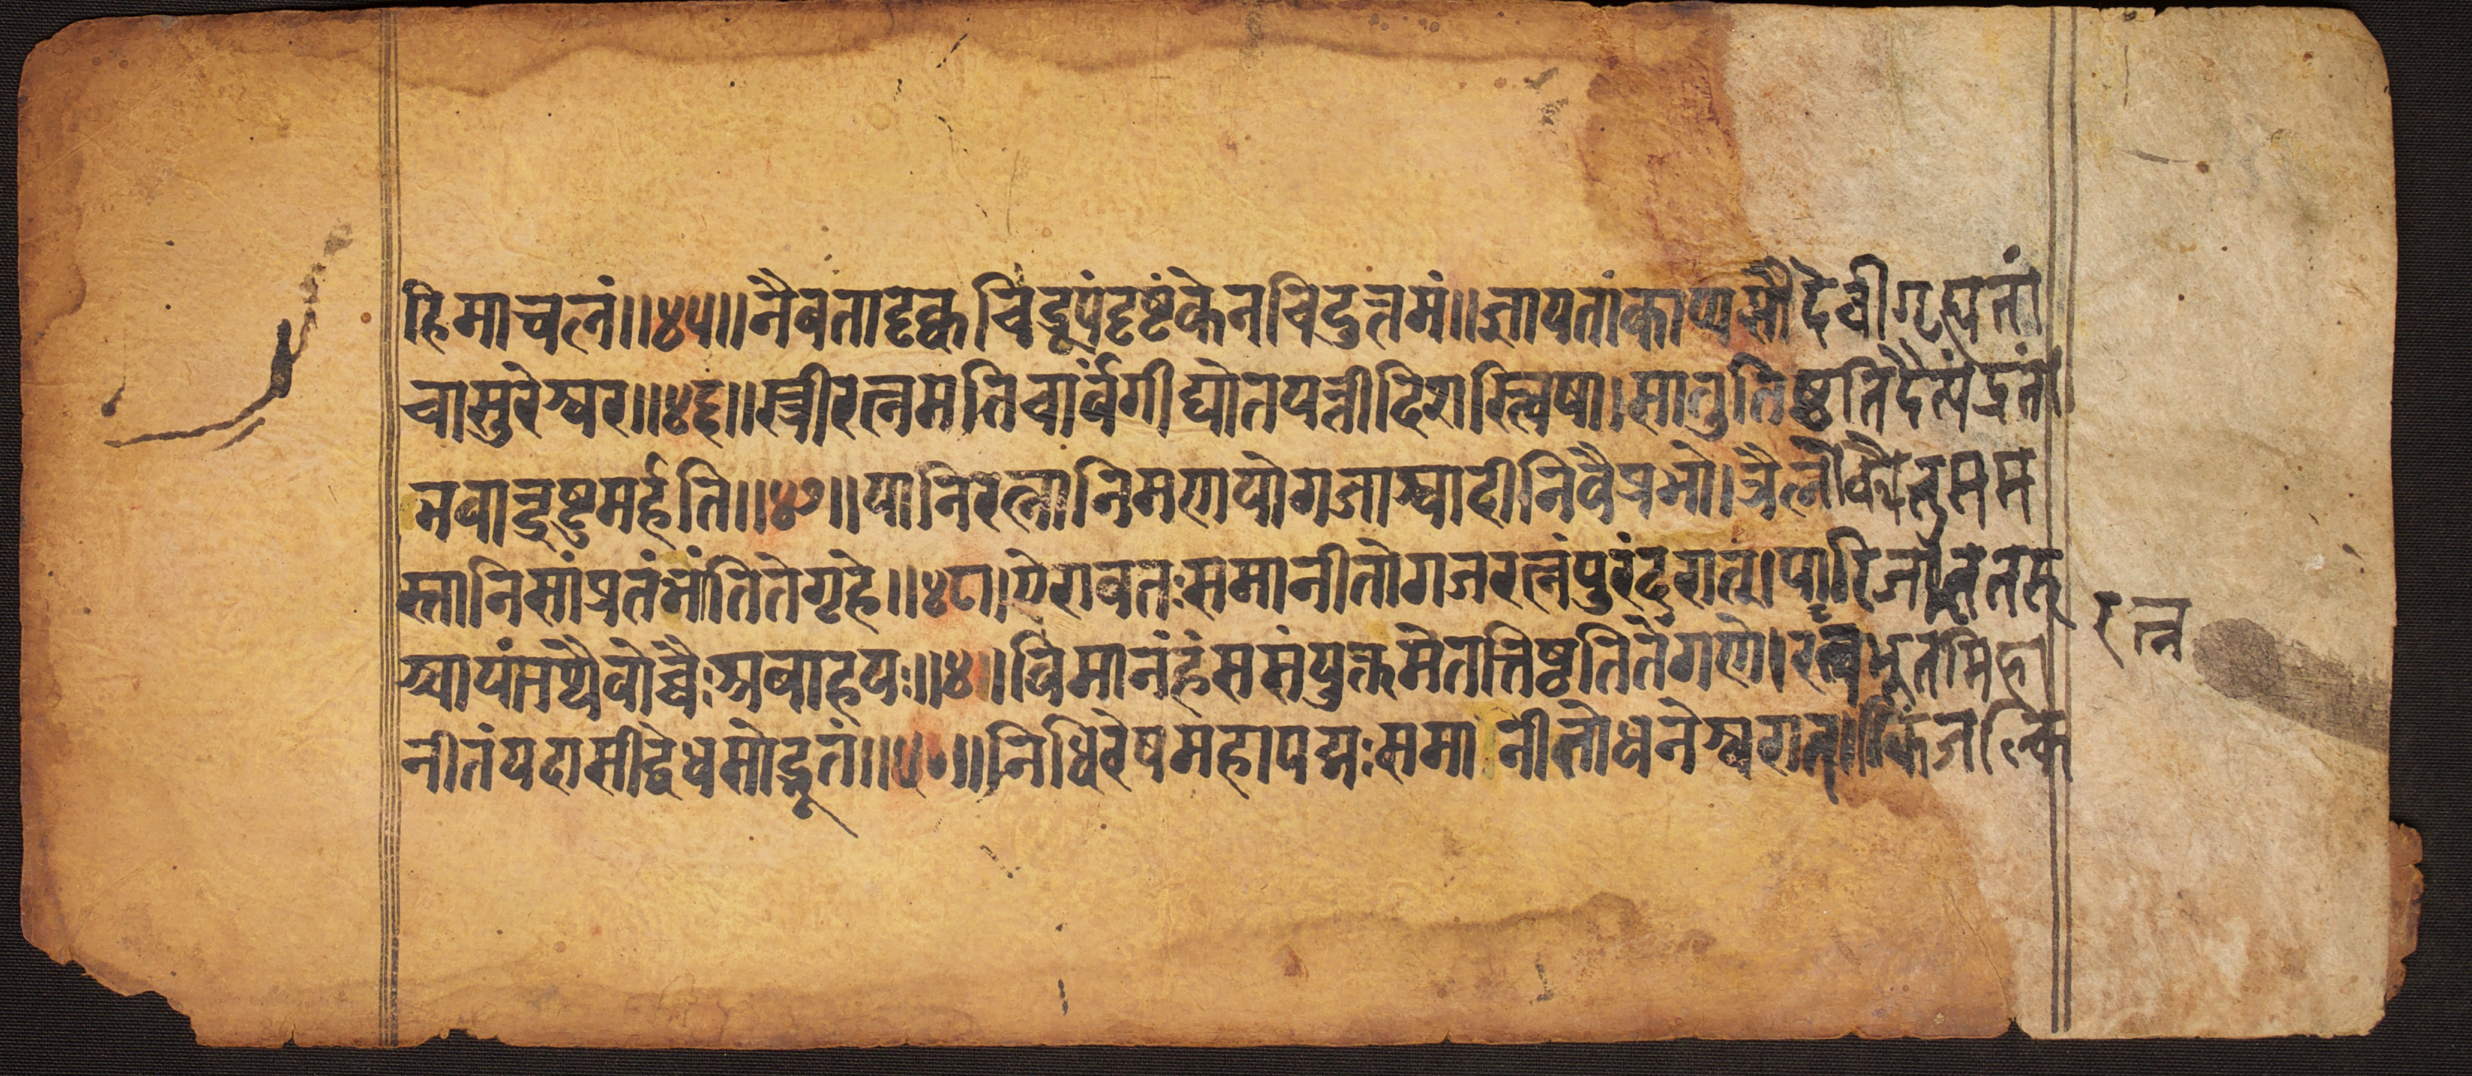 हिमाचलं॥॥४५॥॥नैवतादृक्वचिद्रूपंदृष्टंकेनचिदुत्तमं॥ज्ञायतांकाप्यसौदेवीगृह्यतां
चासुरेश्वर॥॥४६॥॥स्त्रीरत्नमतिचार्वंगीद्योतयन्तीदिशस्त्विषा।सातुतिष्ठतिदैत्येंद्रतां
भवान्द्रष्टुमर्हति॥॥४७॥॥यानिरत्नानिमणयोगजाश्वादीनिवैप्रभो।त्रैलोक्येतुसम
स्तानिसांप्रतंभांतितेगृहे॥॥४८॥।ऐरावतःसमानीतोगजरत्नंपुरंदरात्।पारिजाततरु
श्चायंतथैवोच्चैःश्रवाहयः॥॥४॥॥विमानंहंससंयुक्तमेतत्तिष्ठतितेंगणे।रत्नभूतमिहा
रत्न
नीतंयदासीद्वेधसोद्भूतं॥॥५०॥॥निधिरेषमहापद्मःसमानीतोधनेश्वरात्।किंजल्कि